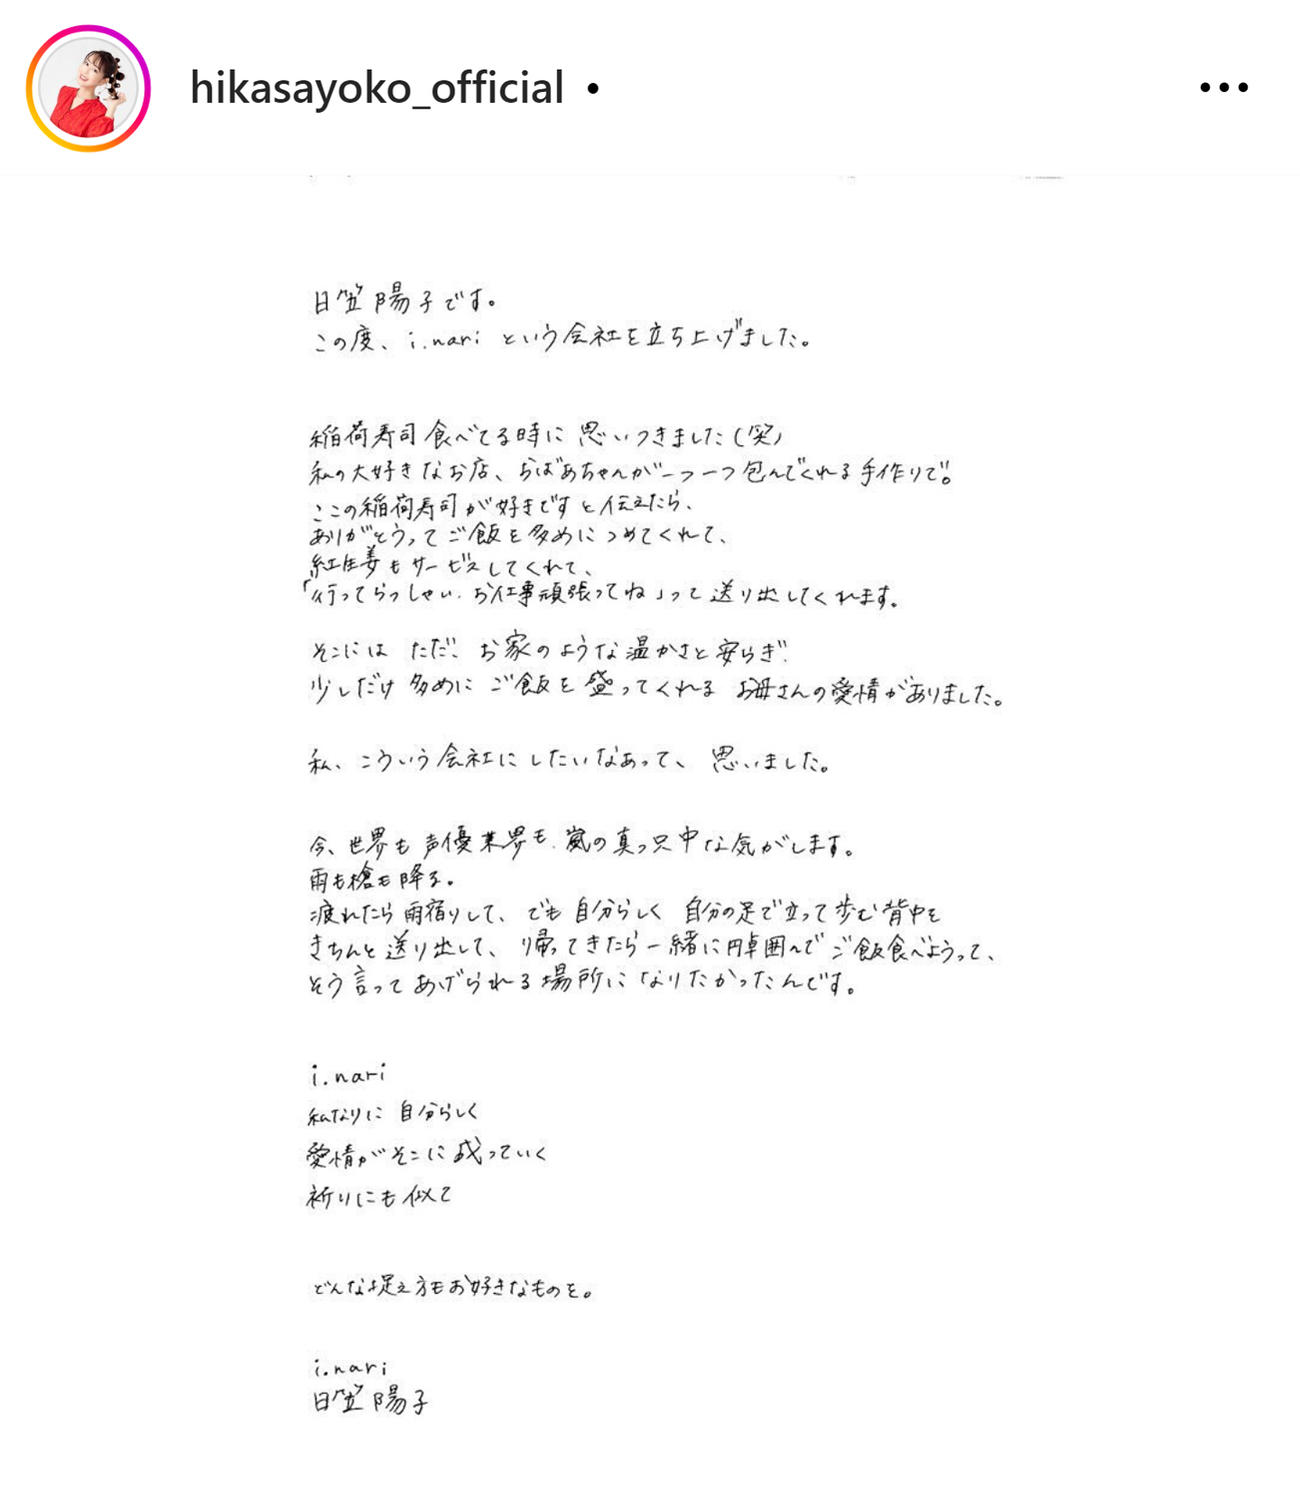 hikasayoko_official •
日笠陽子です。
この度、i.nari という会社を立ち上げました。
稲荷寿司食べてる時に思いつきました(笑)
私の大好きなお店、おばあちゃんが一つ一つ包んでくれる手作りで。
ここの稲荷寿司が好きですと伝えたら、
ありがとうってご飯を多めにつめてくれて、
紅生姜もサービスしてくれて、
「行ってらっしゃい、お仕事頑張ってね」って送り出してくれます。
そこにはただ、お家のような温かさと安らぎ、
少しだけ多めにご飯を盛ってくれるお母さんの愛情がありました。
私、こういう会社にしたいなあって、思いました。
今、世界も声優業界も、嵐の真っ只中な気がします。
雨も槍も降る。
疲れたら雨宿りして、でも自分らしく自分の足で立って歩む背中を
きちんと送り出して、帰ってきたら一緒に円卓囲んでご飯食べようって、
そう言ってあげられる場所になりたかったんです。
i.nari
私なりに自分らしく
愛情がそこに成っていく
祈りにも似て
どんな捉え方もお好きなものを。
i.nari
日笠陽子